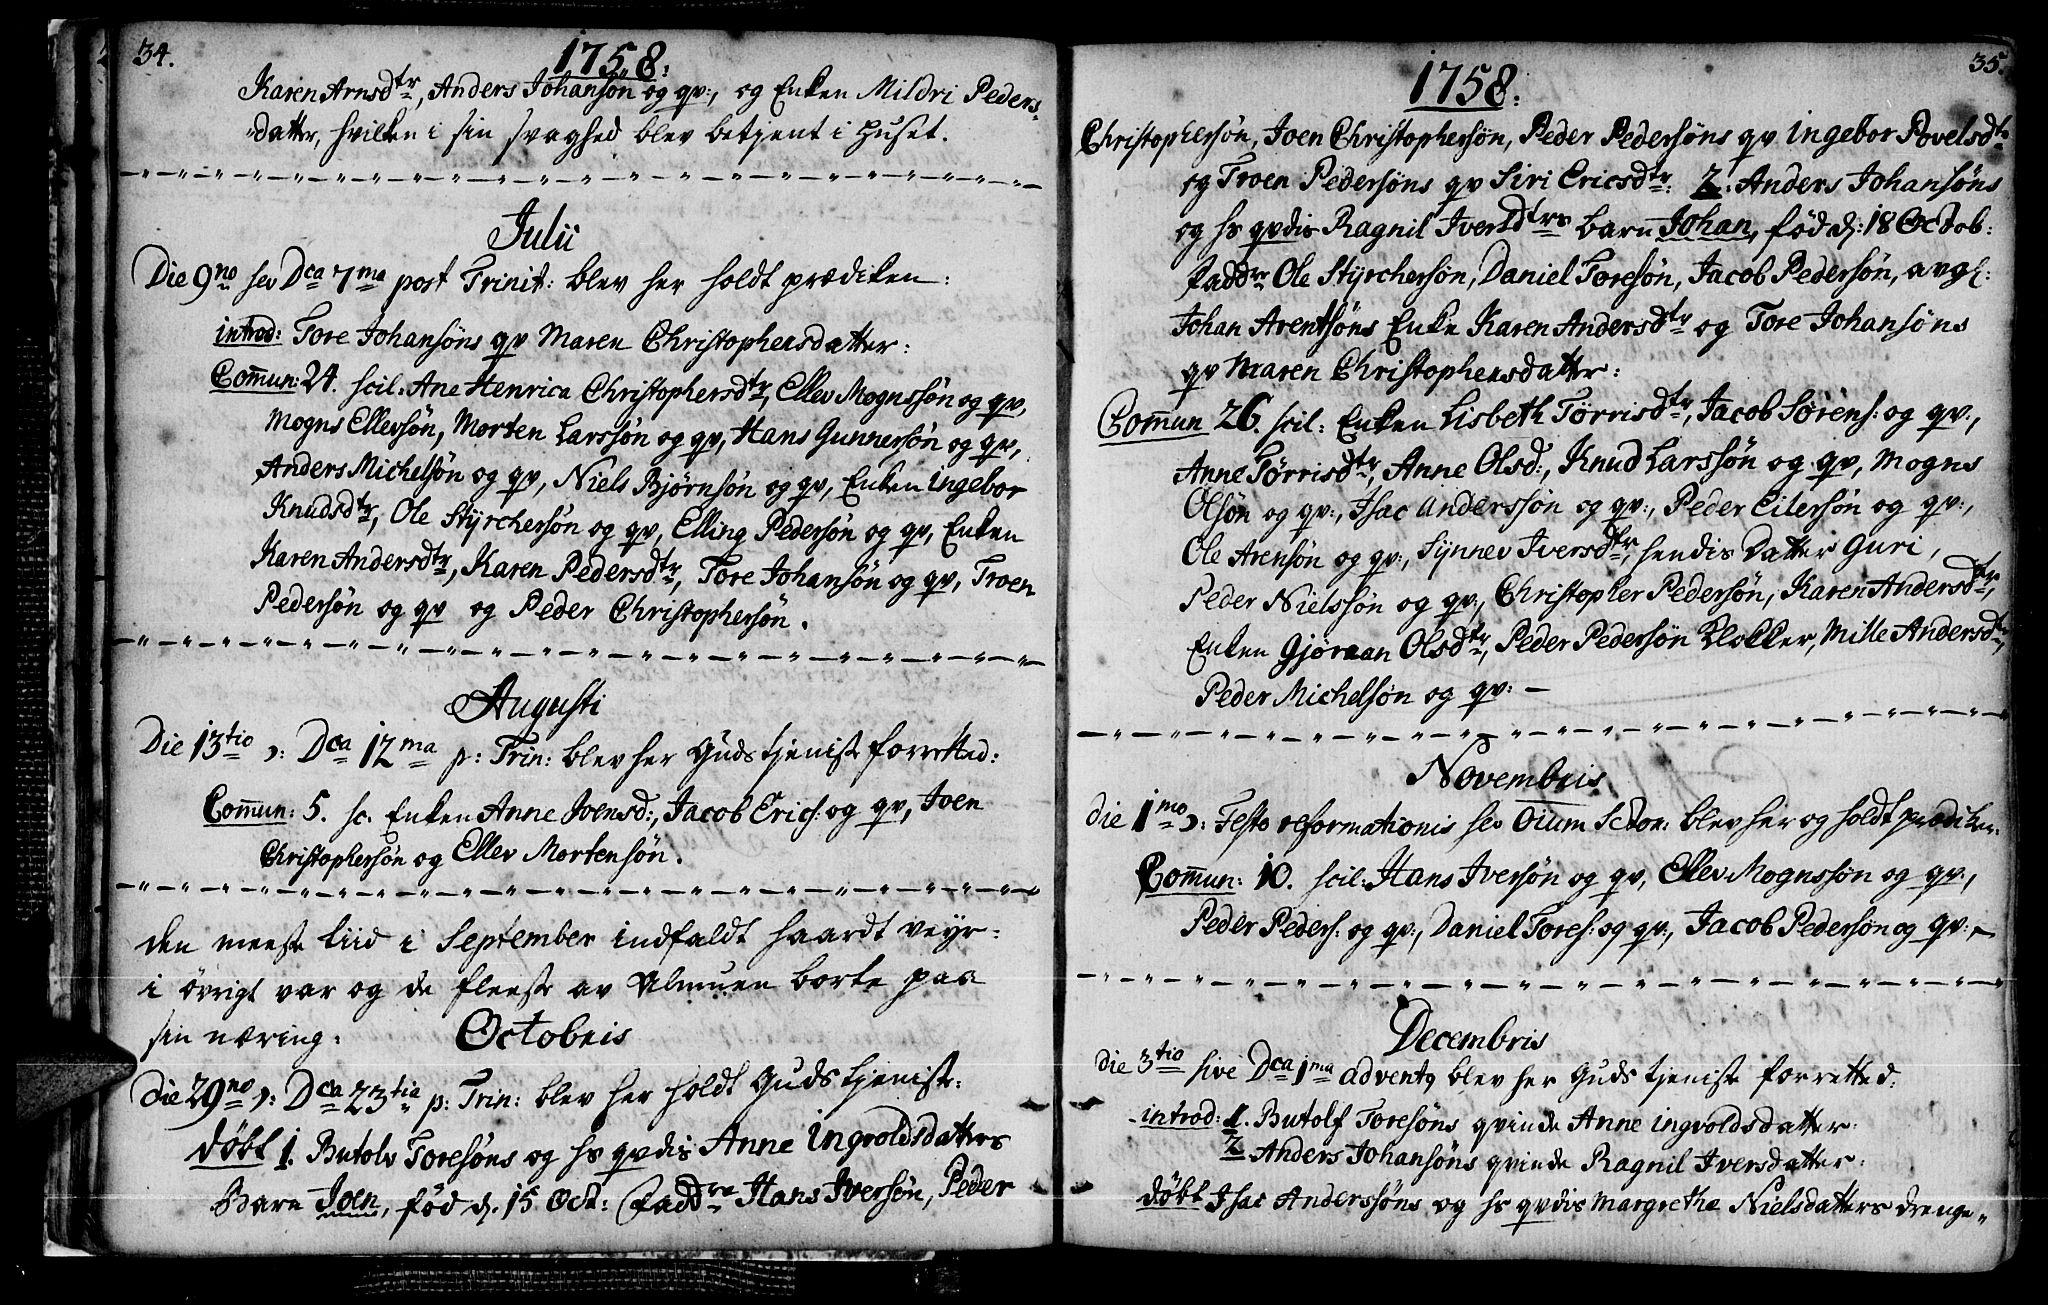 34.
1758.
Karen Arnsdtr, Anders Johansøn og qv:, og Enken Mildri Peders-
datter, hvilken i sin svaghed blev betjent i Huset.
Julii
Die 9no sev Dca 7ma post Trinit: blev her holdt prædiken:
introd: Tore Johansøns qv Maren Christophersdatter:
Com̄un: 24. scil: Ane Henrica Christophersdtr, Ellev Mognssøn og qv,
Mogns Ellevsøn, Morten Larssøn og qv, Hans Gunnersøn og qv,
Anders Michelsøn og qv, Niels Bjørnsøn og qv, Enken Ingebor
Knudsdtr, Ole Styrchersøn og qv, Elling Pedersøn og qv, Enken
Karen Andersdtr, Karen Pedersdtr, Tore Johansøn og qv, Troen
Pedersøn og qv og Peder Christophersøn.
Augusti
Die 13tio ɔ: Dca 12ma p: Trin: blev her Guds tjeniste forretted:
Com̄un: 5. sc. Enken Anne Joensd:, Jacob Erics: og qv, Joen
Christophersøn og Ellev Mortensøn.
Den meeste tiid i September indfaldt haardt veyr-
i øvrigt var og de fleeste av Almuen borte paa
sin næring.
Octobris
Die 29no ɔ: Dca 23tia p: Trin: blev her holdt Guds tjeniste:
døbt 1. Butolv Toresøns og hs qvdis Anne Ingvoldsdatters
Barn Joen, fød d. 15 Oct: Faddre Hans Iversøn, Peder
35.
1758.
Christophersøn, Joen Christophersøn, Peder Pedersøns qv Ingebor Povelsdtr
og Troen Pedersøns qv Siri Ericsdtr: 2: Anders Johansøns
og hs qvdis Ragnil Iversdtrs barn Johan, fød d: 18 Octob:
Faddre Ole Styrchersøn, Daniel Toresøn, Jacob Pedersøn, avgl:
Johan Arentsøns Enke Karen Andersdtr og Tore Johansøns
qv Maren Christophersdatter:
Com̄un 26. scil: Enken Lisbeth Tørrisdtr, Jacob Sørens: og qv:,
Anne Tørrisdtr, Anne Olsd:, Knud Larssøn og qv, Mogns
Olsøn og qv:, Isac Anderssøn og qv:, Peder Eilersøn og qv:,
Ole Arensøn og qv:, Synnev Iversdtr, hendis Datter Guri,
Peder Nielssøn og qv:, Christopher Pedersøn, Karen Andersdtr,
Enken Gjøraan Olsdtr, Peder Pedersøn Klokker, Mille Andersdtr,
Peder Michelsøn og qv: –
Novembris
Die 1mo ɔ: Festo reformationis sev Oium Sctor: blev her og holdt prædiken.
Com̄un: 10. scil: Hans Iversøn og qv, Ellev Mognssøn og qv:,
Peder Peders: og qv:, Daniel Tores: og qv:, Jacob Pedersøn og qv: –
Decembris
Die 3tio sive Dca 1ma advent9 blev her Guds tjeniste forretted.
introd: 1. Butolf Toresøns qvinde Anne Ingvoldsdatter:
2 Anders Johansøns qvinde Ragnil Iversdatter:
døbt Isac Anderssøns og hs qvdis Margrethe Nielsdatters drenge-